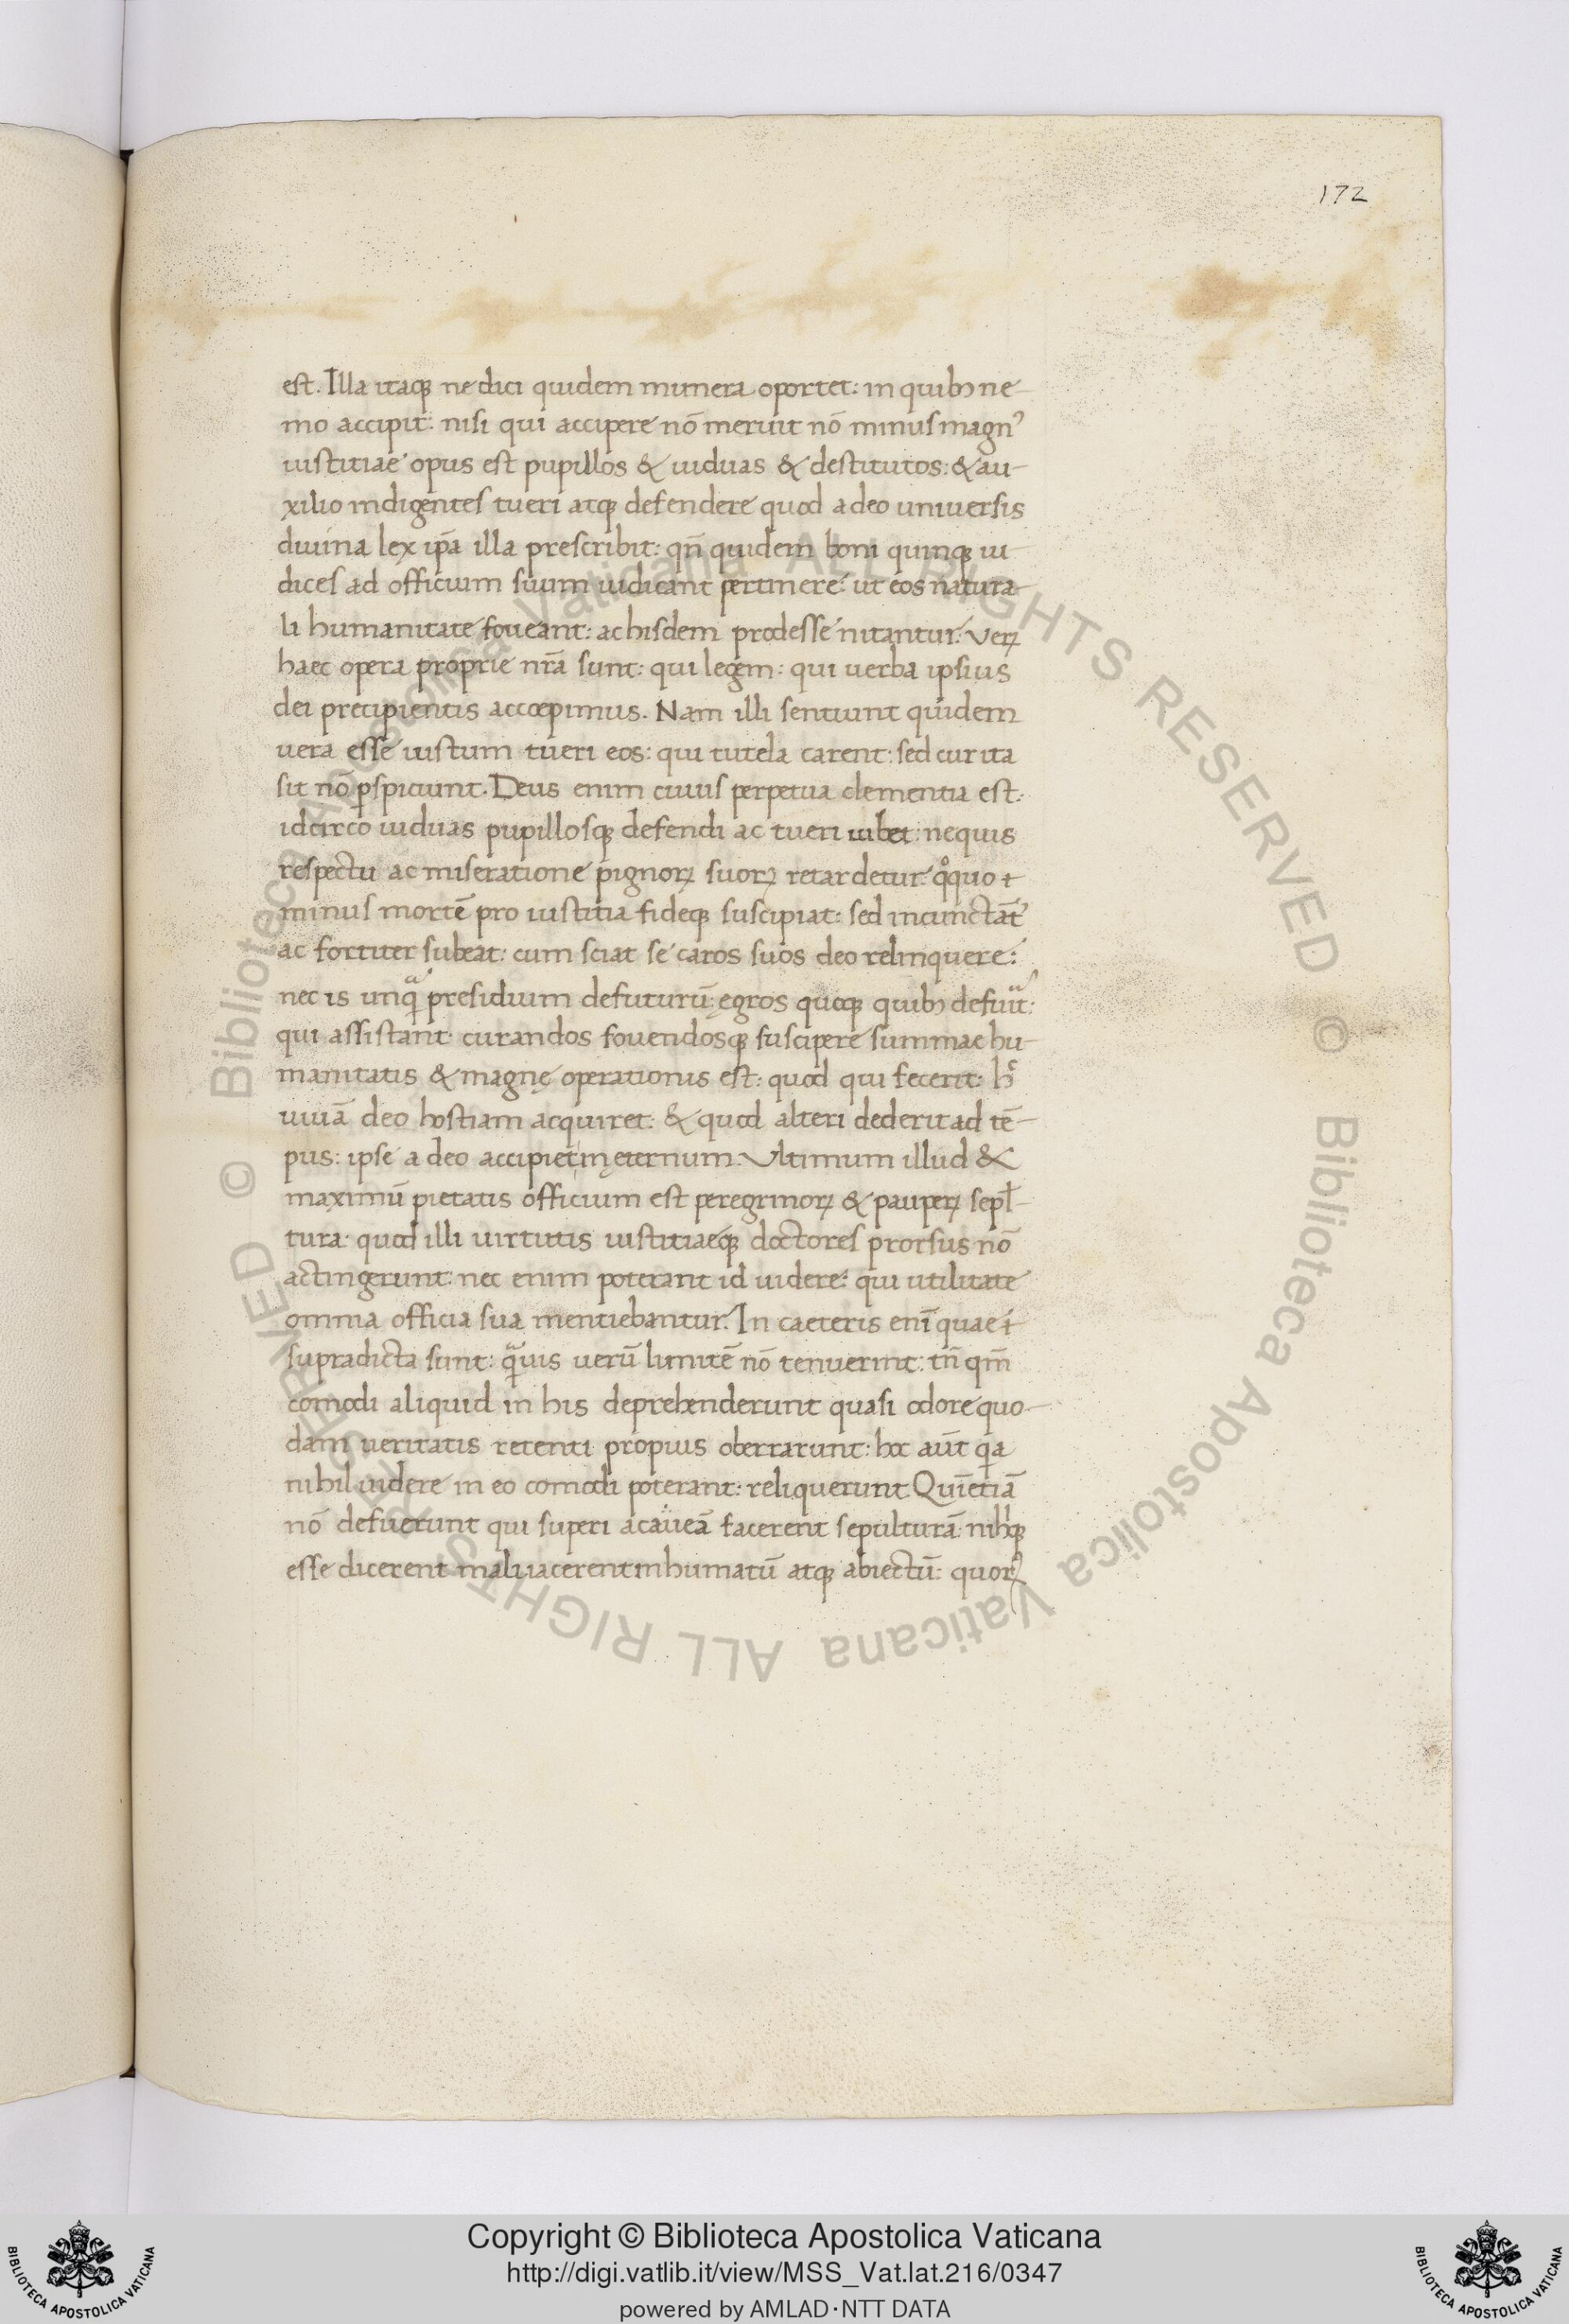 172
est. Illa itaq; ne dici quidem munera oportet: in quibꝫ ne-
mo accipit: nisi qui accipere nō meruit nō minus magnꝰ
iustitiae opus est pupillos & uiduas & destitutos: & au-
xilio indigentes tueri atq; defendere quod adeo uniuersis
diuina lex ip̄a illa prescribit: qn̄ quidem boni quinq; iu-
dices ad officium suum iudicant pertinere: ut eos natura-
li humanitate foueant: ac hisdem prodesse nitantur. Veꝝ
haec opera proprie nr̄a sunt: qui legem: qui uerba ipsius
dei precipientis accoepimus. Nam illi sentiunt quidem
uera esse iustum tueri eos: qui tutela carent: sed cur ita
sit nō ꝑspiciunt. Deus enim cuius perpetua clementia est:
idcirco uiduas pupillosq; defendi ac tueri iubet: nequis
respectu ac miseratione pignoꝝ suoꝝ retardetur: qͦquo
minus mortē pro iustitia fideq; suscipiat: sed incunctāt
ac fortiter subeat: cum sciat se caros suos deo relinquere:
nec is unqͣ presidium defuturū: ęgros quoq; quibꝫ defuͣit:
qui assistant curandos fouendosq; suscipere summae hu-
manitatis & magnę operationis est: quod qui fecerit: hͨ
uiuā deo hostiam acquiret: & quod alteri dederit ad tē-
pus: ipse a deo accipiet in ęternum. Vltimum illud &
maximū pietatis officium est peregrinoꝝ & paupeꝝ sepl̄-
tura: quod illi uirtutis iustitiaeq; doctores prorsus nō
actingerunt: nec enim poterant id uidere: qui utilitate
omnia officia sua mentiebantur. In caeteris enī quae
supradicta sunt: qͣuis uerū limitē nō tenuerint: tn̄ qm̄
comodi aliquid in his deprehenderunt quasi odore quo-
dam ueritatis retenti propius oberrarunt: hoc aūt qa
nihil uidere in eo comodi poterant: reliquerunt Quīetiā
nō defuerunt qui superi acaueā facerent sepulturā: nihlq;
esse dicerent mali iacerent inhumatū atq; abiectū: quoꝝ
Copyright © Biblioteca Apostolica Vaticana
http://digi.vatlib.it/view/MSS_Vat.lat.216/0347
powered by AMLAD·NTT DATA
BIBLIOTECA APOSTOLICA VATICANA
BIBLIOTECA APOSTOLICA VATICANA
© Biblioteca Apostolica Vaticana ALL RIGHTS RESERVED © Biblioteca Apostolica Vaticana ALL RIGHTS RESERVED